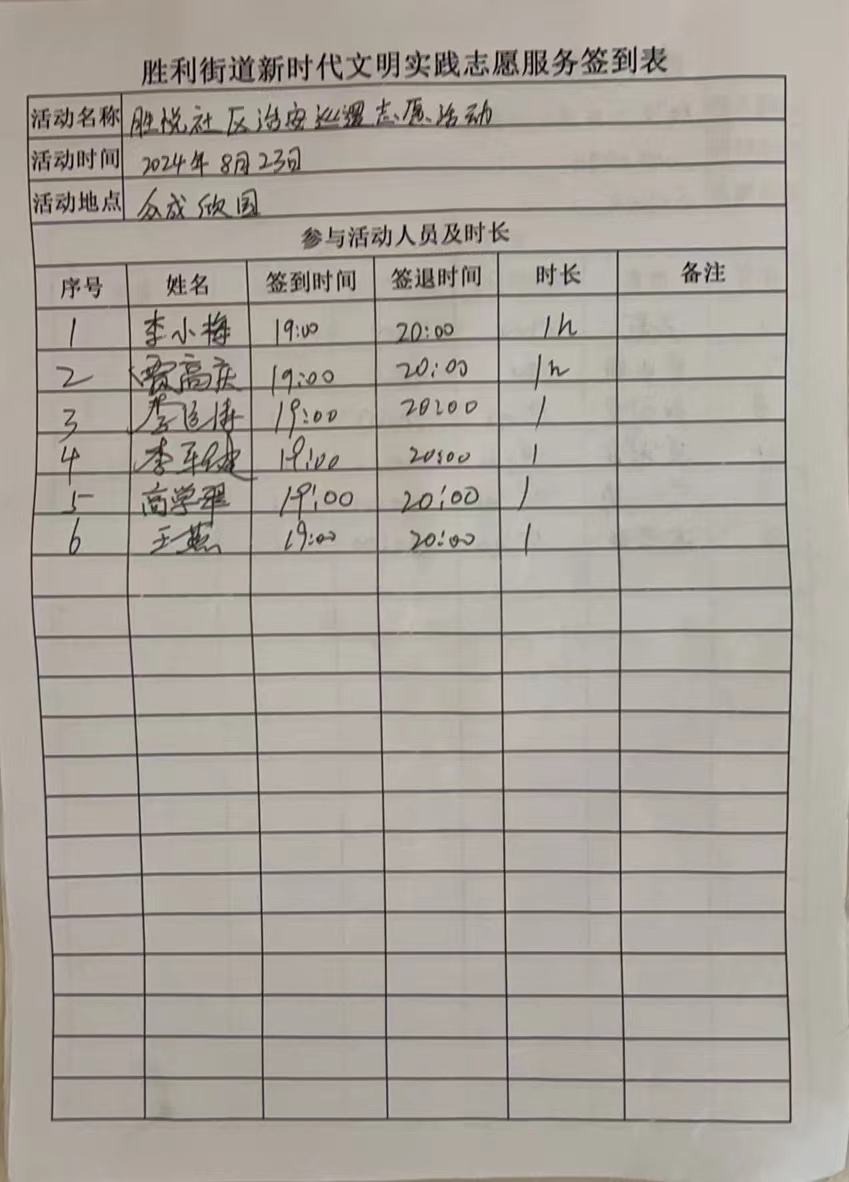 胜利街道新时代文明实践志愿服务签到表
活动名称 胜悦社区治安巡逻志愿活动
活动时间 2024年8月23日
活动地点 众成欣园
参与活动人员及时长
序号 姓名 签到时间 签退时间 时长 备注
1 李小梅 19:00 20:00 1h
2 贾高庆 19:00 20:00 1h
3 李 19:00 20:00 1
4 李 19:00 20:00 1
5 高学 19:00 20:00 1
6 王燕 19:00 20:00 1